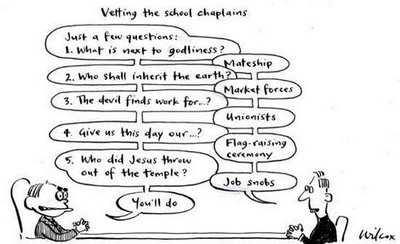 Vetting the school chaplains
Just a few questions:
1. What is next to godliness?
Mateship
2. Who shall inherit the earth?
Market forces
3. The devil finds work for...?
Unionists
4. Give us this day our...?
Flag-raising
ceremony
5. Who did Jesus throw
out of the temple?
Job snobs
You'll do
Wilcox